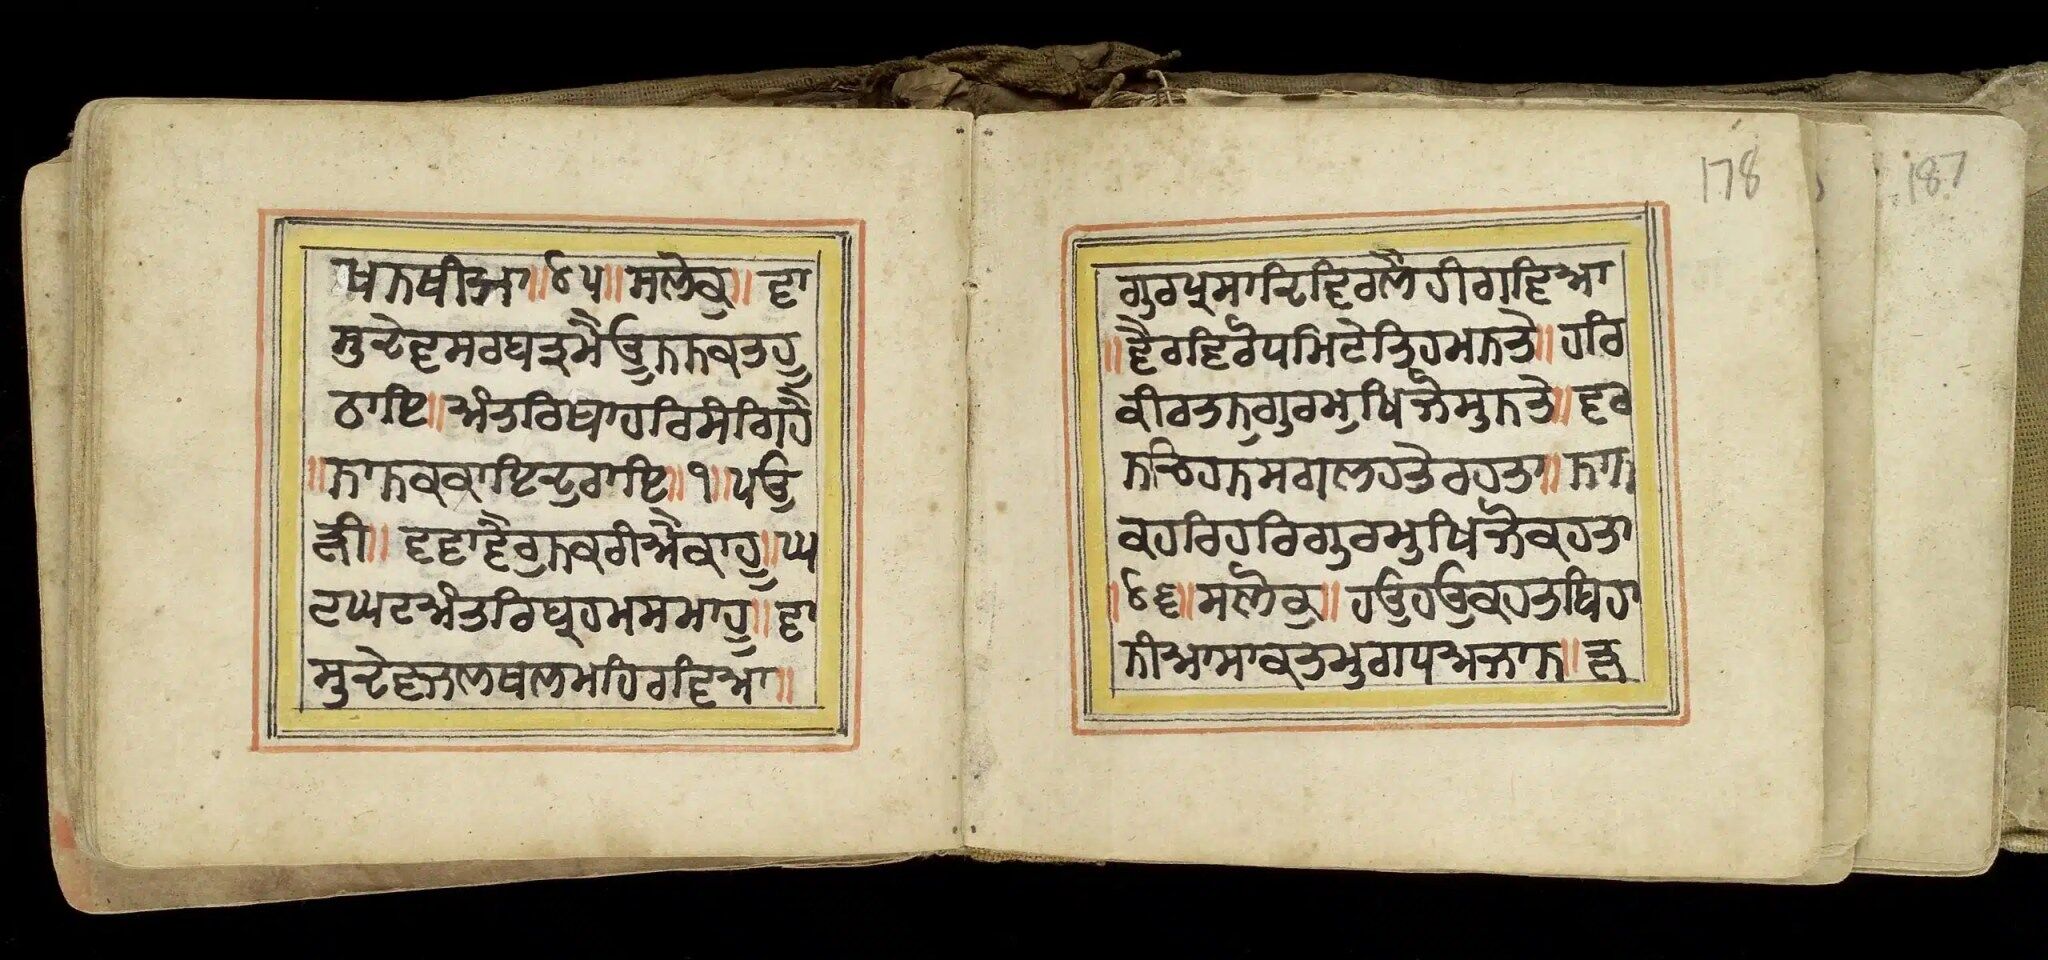 ਖਨਥੀਆ॥੪੫॥ਸਲੋਕੁ॥ ਵਾ
ਸੁਦੇਵਸਰਬਤ੍ਰਮੈਊਨਨਕਤਹੂ
ਠਾਇ॥ਅੰਤਰਿਬਾਹਰਿਸੰਗਿਹੈ
॥ਨਾਨਕਕਾਇਦੁਰਾਇ॥੧॥ਪਉ
ੜੀ॥ ਵਵਾਵੈਰੁਨਕਰੀਐਕਾਹੂ॥ਘ
ਟਘਟਅੰਤਰਿਬ੍ਰਹਮਸਮਾਹੂ॥ਵਾ
ਸੁਦੇਵਜਲਥਲਮਹਿਰਵਿਆ॥
178
187
ਗੁਰਪ੍ਰਸਾਦਿਵਿਰਲੈਹੀਗਵਿਆ
॥ਵੈਰਵਿਰੋਧਮਿਟੇਤਿਹਮਨਤੇ॥ਹਰਿ
ਕੀਰਤਨੁਗੁਰਮੁਖਿਜੋਸੁਨਤੇ॥ਵਰ
ਨਚਿਹਨਸਗਲਹਤੇਰਹਤਾ॥ਨਾਨ
ਕਹਰਿਹਰਿਗੁਰਮੁਖਿਜੋਕਹਤਾ
॥੪੬॥ਸਲੋਕੁ॥ ਹਉਹਉਕਹਤਬਿਹਾ
ਨੀਆਸਾਕਤਮੁਗਧਅਜਾਨ॥ੜ